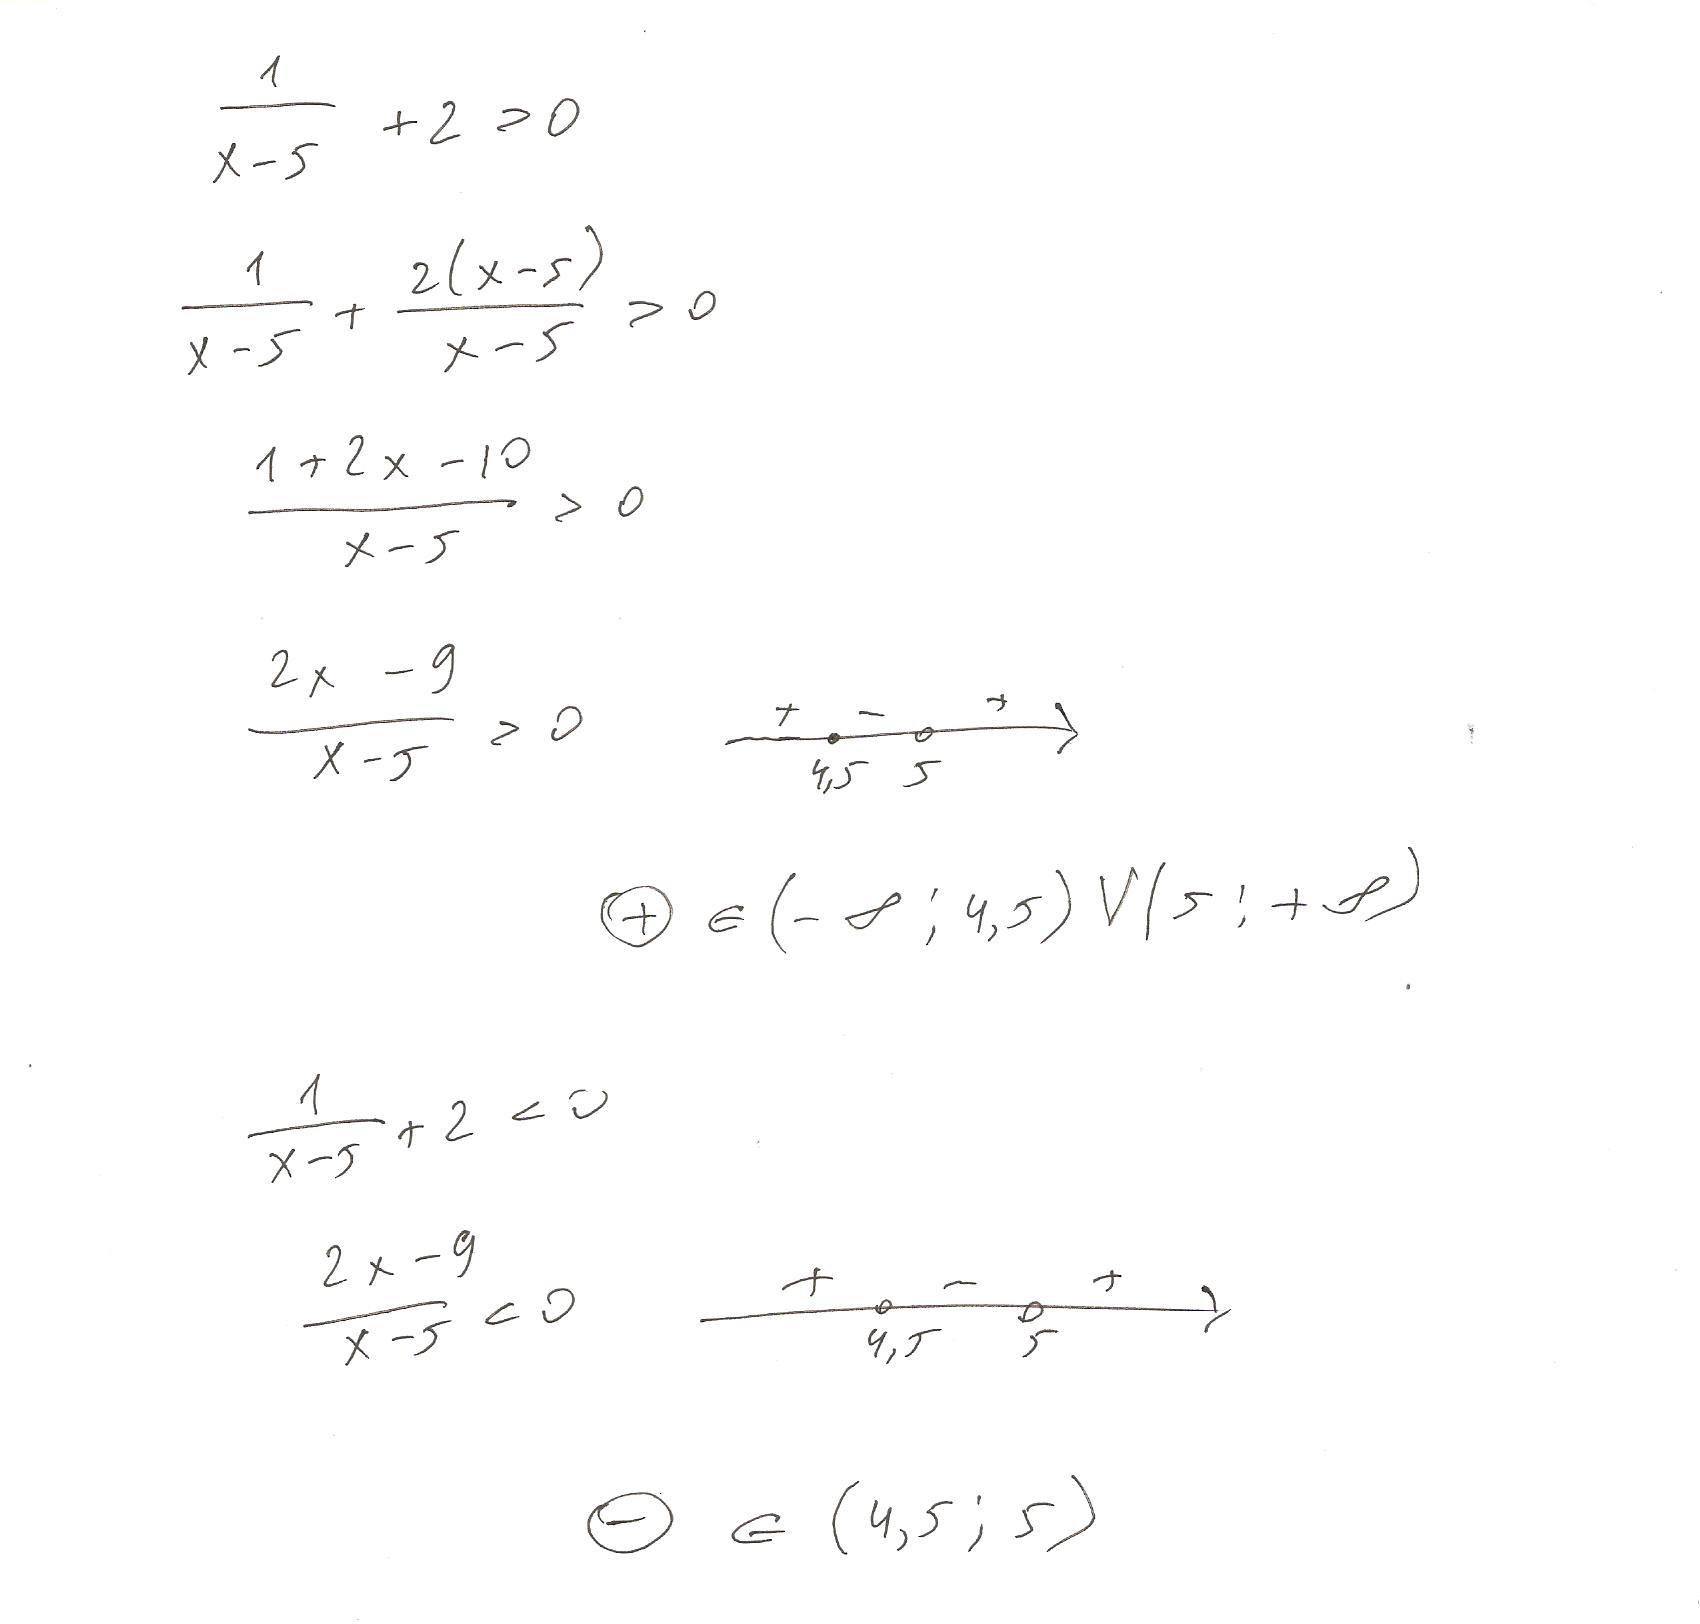 1/(x-5) + 2 > 0
1/(x-5) + 2(x-5)/(x-5) > 0
(1 + 2x - 10)/(x-5) > 0
(2x - 9)/(x-5) > 0
+ - +
4,5 5
⊕ ∈ (-∞; 4,5) V (5; +∞)
1/(x-5) + 2 < 0
(2x - 9)/(x-5) < 0
+ - +
4,5 5
⊖ ∈ (4,5; 5)